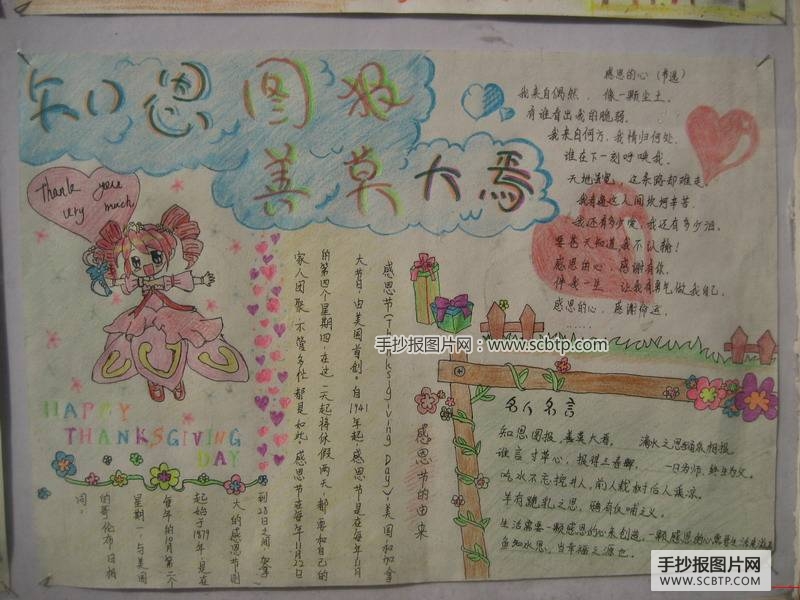 知恩图报
善莫大焉
Thank you
very much
HAPPY
THANKSGIVING
DAY
感恩的心（节选）
我来自偶然，像一颗尘土。
有谁看出我的脆弱。
我来自何方，我情归何处
谁在下一刻呼唤我。
天地虽宽，这条路却难走。
我看遍这人间坎坷辛苦。
我还有多少爱，我还有多少泪。
要苍天知道我不认输！
感恩的心，感谢有你。
伴我一生，让我有勇气做我自己。
感恩的心，感谢命运。
……
感恩节的由来
感恩节（Thanksgiving Day），美国和加拿
大节日，由美国首创，自1941年起，感恩节是在每年11月
的第四个星期四，在这一天起将休假两天，都要和自己的
家人团聚，不管多忙都是如此。感恩节在每年11月22日
到28日之间，加拿
大的感恩节则
起始于1879年，是在
每年的10月第二个
星期一，与美国
的哥伦布日相
同。
名人名言
知恩图报，善莫大焉。 滴水之恩当涌泉相报
谁言寸草心，报得三春晖。 一日为师，终身为父。
吃水不忘挖井人，前人栽树后人乘凉。
羊有跪乳之恩，鸦有反哺之义。
生活需要一颗感恩的心来创造，一颗感恩的心需要生活来滋养
手抄报图片网：www.scbtp.com
手抄报图片网
WWW.SCBTP.COM